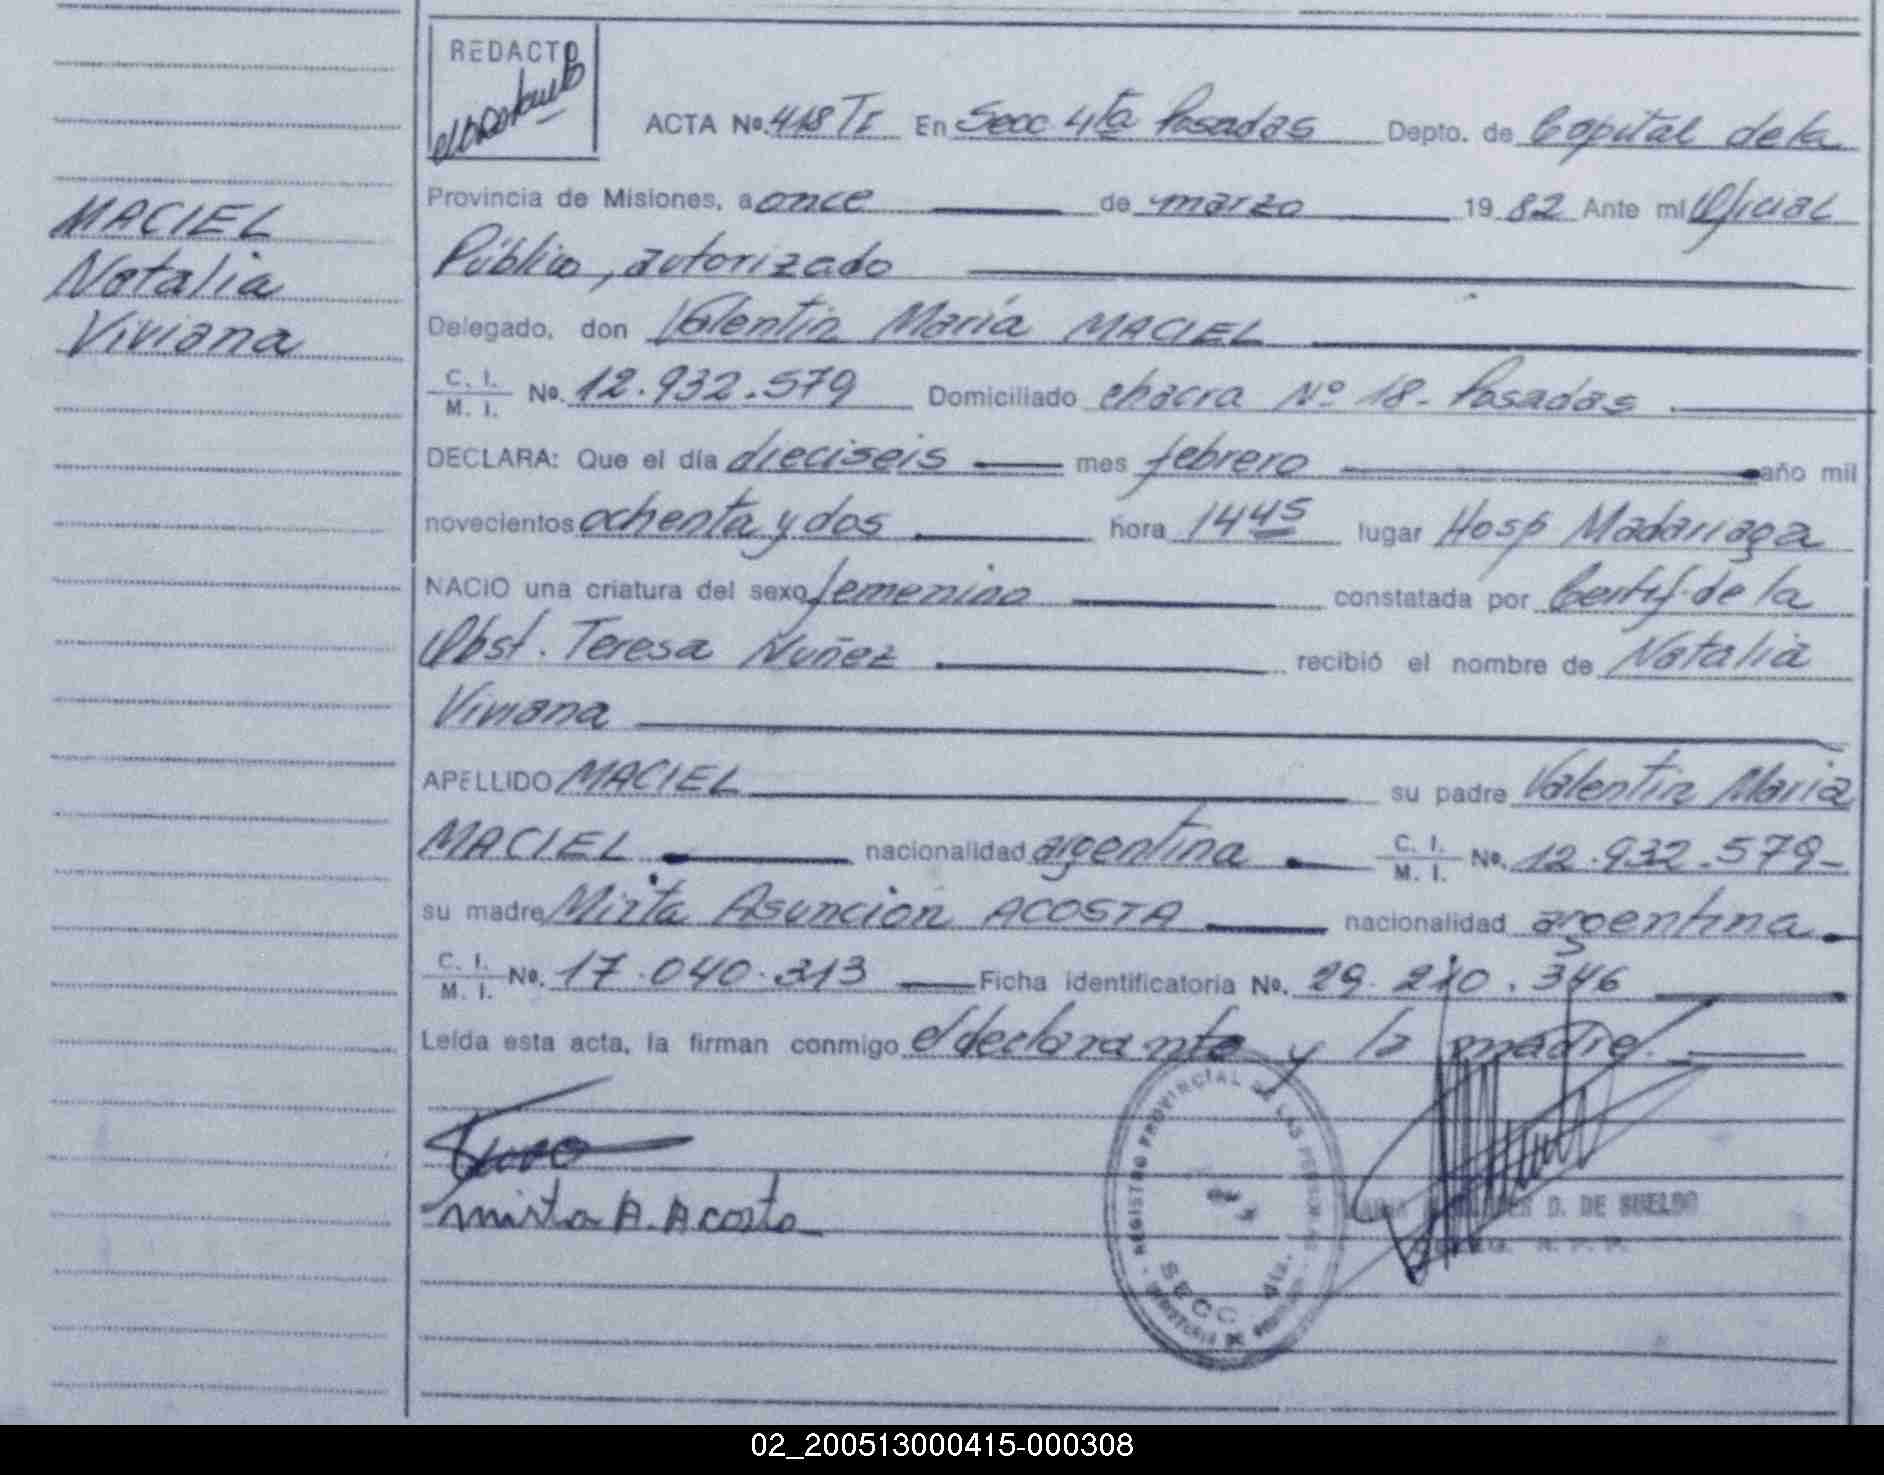 REDACTO
ACTA Nº 418 TI En Secc 4ta Posadas Depto. de Capital de la
Provincia de Misiones, a once de marzo 19 82 Ante mi Oficial
Público, autorizado
MACIEL
Natalia
Viviana
Delegado, don Valentin María MACIEL
C. I.
M. I. No. 12.932.579 Domiciliado chacra Nº 18- Posadas
DECLARA: Que el día dieciseis mes febrero año mil
novecientos ochenta y dos hora 14 45 lugar Hosp Madariaga
NACIO una criatura del sexo femenino constatada por Certif. de la
Obst. Teresa Nuñez recibió el nombre de Natalia
Viviana
APELLIDO MACIEL su padre Valentin Maria
MACIEL nacionalidad argentina C. I.
M. I. No. 12.932.579-
su madre Mirta Asunción ACOSTA nacionalidad argentina
C. I.
M. I. No. 17.040.313 Ficha identificatoria No. 29.210.346
Leída esta acta, la firman conmigo el declarante y la madre.
mirta A. Acosta
REGISTRO PROVINCIAL DE LAS PERSONAS
SECC. 4ta.
D. DE SUELDO
R. P. P.
02_200513000415-000308